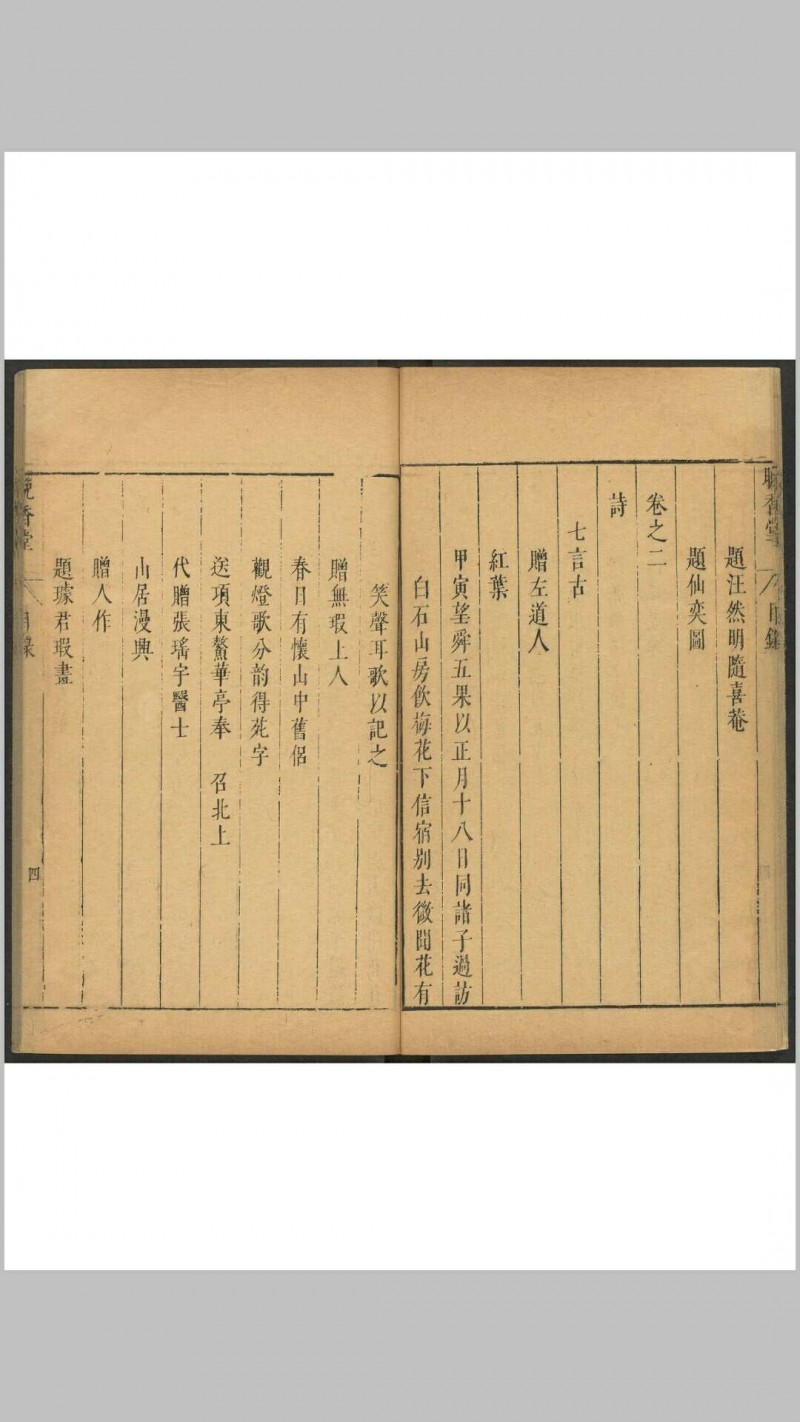 晚香堂 目錄
題汪然明隨喜菴
題仙奕圖
卷之二
詩
七言古
贈左道人
紅葉
甲寅望舜五果以正月十八日同諸子過訪
白石山房飲梅花下信宿別去微聞花有
笑聲耳歌以記之
贈無瑕上人
春日有懷山中舊侶
觀燈歌分韵得苑字
送項東鰲華亭奉 召北上
代贈張瑤宇醫士
山居漫興
贈人作
題璩君瑕畫
晚香堂 目錄 四